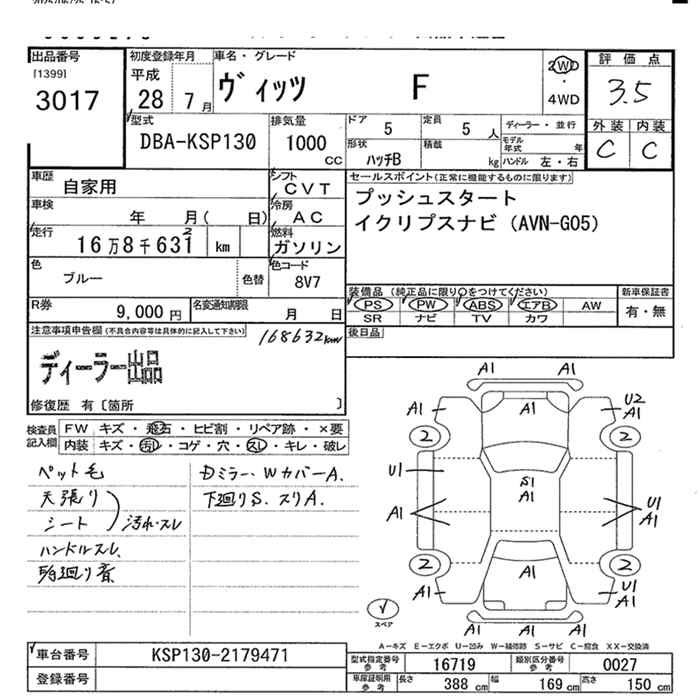 出品番号
[1399]
3017
初度登録年月
平成
28 7月
車名・グレード
ヴィッツ F
2WD
・
4WD
評価点
3.5
外装 内装
C C
型式
DBA-KSP130
排気量
1000
cc
ドア
5
定員
5 人
ディーラー・並行
形状
ハッチB
積載
kg
モデル年式 年
ハンドル 左・右
車歴
自家用
シフト
CVT
車検
年 月( 日)
冷房
AC
走行
16万8千631 km
2
燃料
ガソリン
色
ブルー
色替
色コード
8V7
R券
9,000円
名変通知期限
月 日
セールスポイント(正常に機能するものに限ります)
プッシュスタート
イクリプスナビ(AVN-G05)
装備品(純正品に限り○をつけてください)
PS PW ABS エアB AW
SR ナビ TV カワ
新車保証書
有・無
後日品
注意事項申告欄(不具合内容等は具体的に記入して下さい)
168632km
ディーラー出品
修復歴 有〔箇所 〕
検査員記入欄
FW キズ・飛石・ヒビ割・リペア跡・×要
内装 キズ・汚れ・コゲ・穴・スレ・キレ・破レ
ペット毛
天張り
シート 汚れ・スレ
ハンドルスレ
Dミラー、WカバーA.
下廻りS. スリA.
A1 A1
A1 A1 U2
A1
2 2
U1 S1
A1
A1 U1
A1
2 2
A1 A1 U1
A1
A1 A1
スペア
A-キズ E-エクボ U-凹み W-補修跡 S-サビ C-腐食 XX-交換済
車台番号
KSP130-2179471
登録番号
型式指定番号 参考
16719
類別区分番号 参考
0027
車庫証明用 参考
長さ 388 cm 幅 169 cm 高さ 150 cm